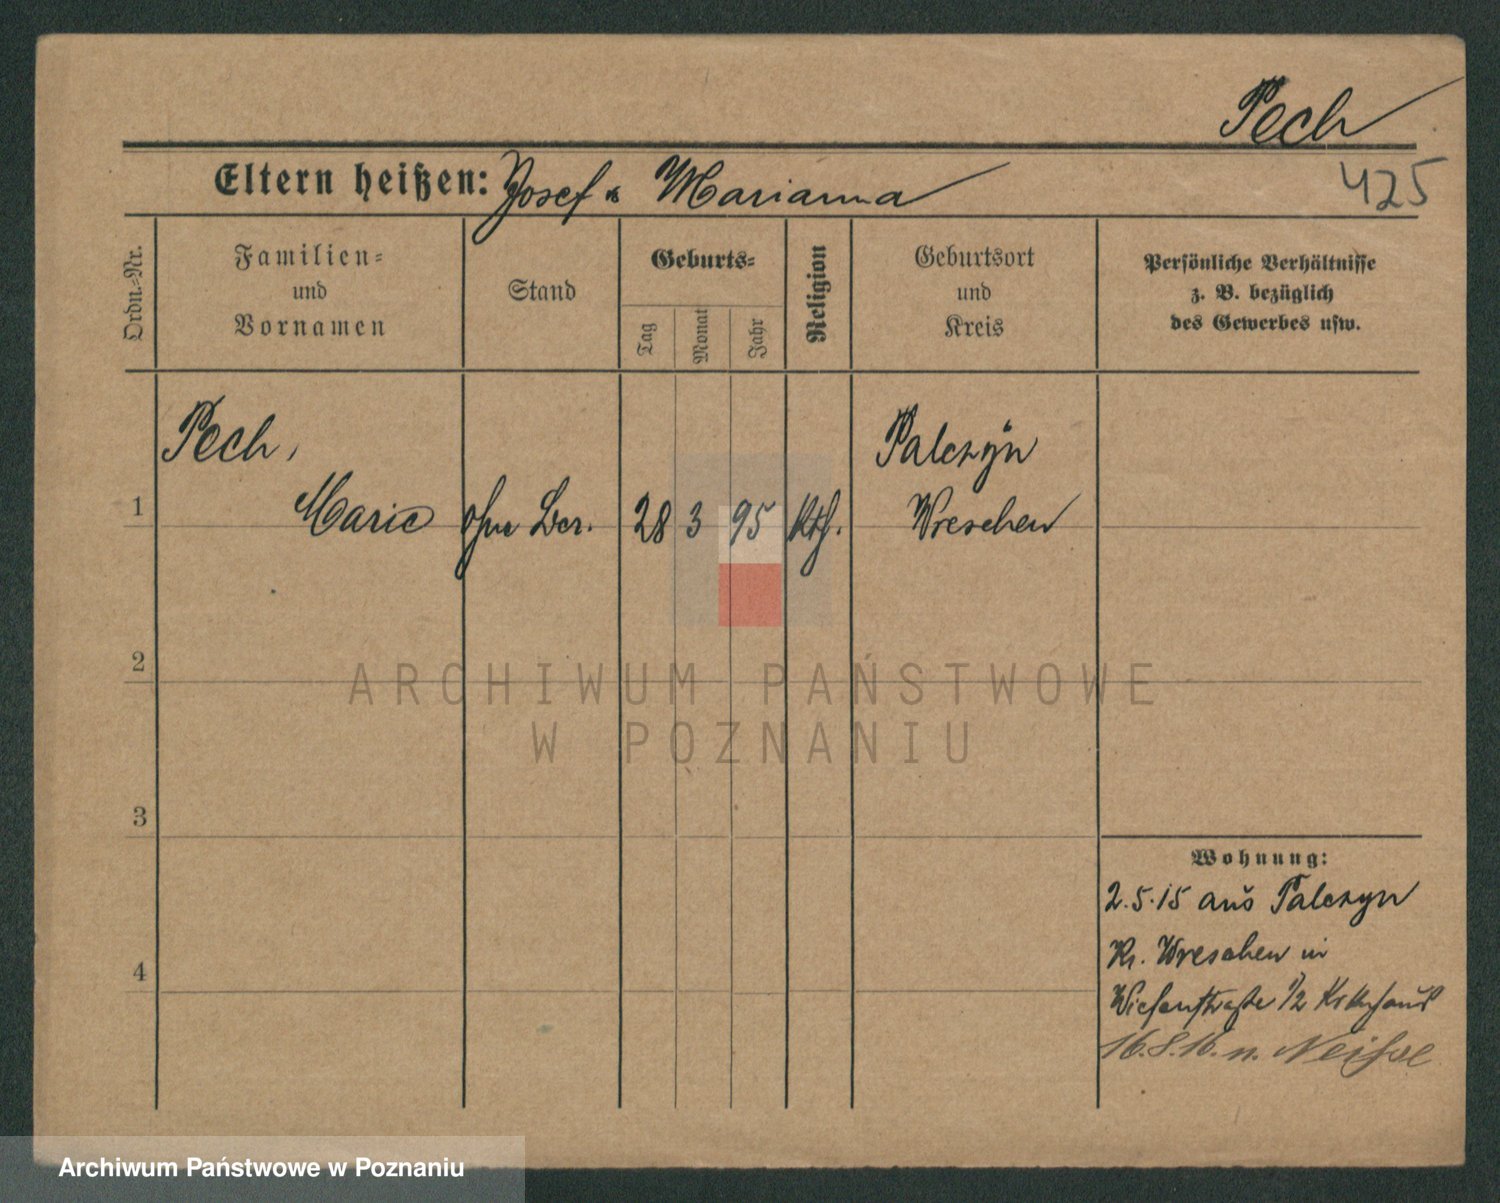 Pech
425
Eltern heißen: Josef u Marianna
Ordn.-Nr.
Familien-
und
Vornamen
Stand
Geburts-
Tag
Monat
Jahr
Religion
Geburtsort
und
Kreis
Persönliche Verhältnisse
z. B. bezüglich
des Gewerbes usw.
Pech,
Palczyn
1 Marie ohne Ber. 28 3 95 kth. Wreschen
2
ARCHIWUM PAŃSTWOWE
W POZNANIU
3
Wohnung:
2.5.15 aus Palczyn
Kr. Wreschen in
4
Wiesenstraße 1/2 Krkhaus
16.8.16. n. Neisse
Archiwum Państwowe w Poznaniu